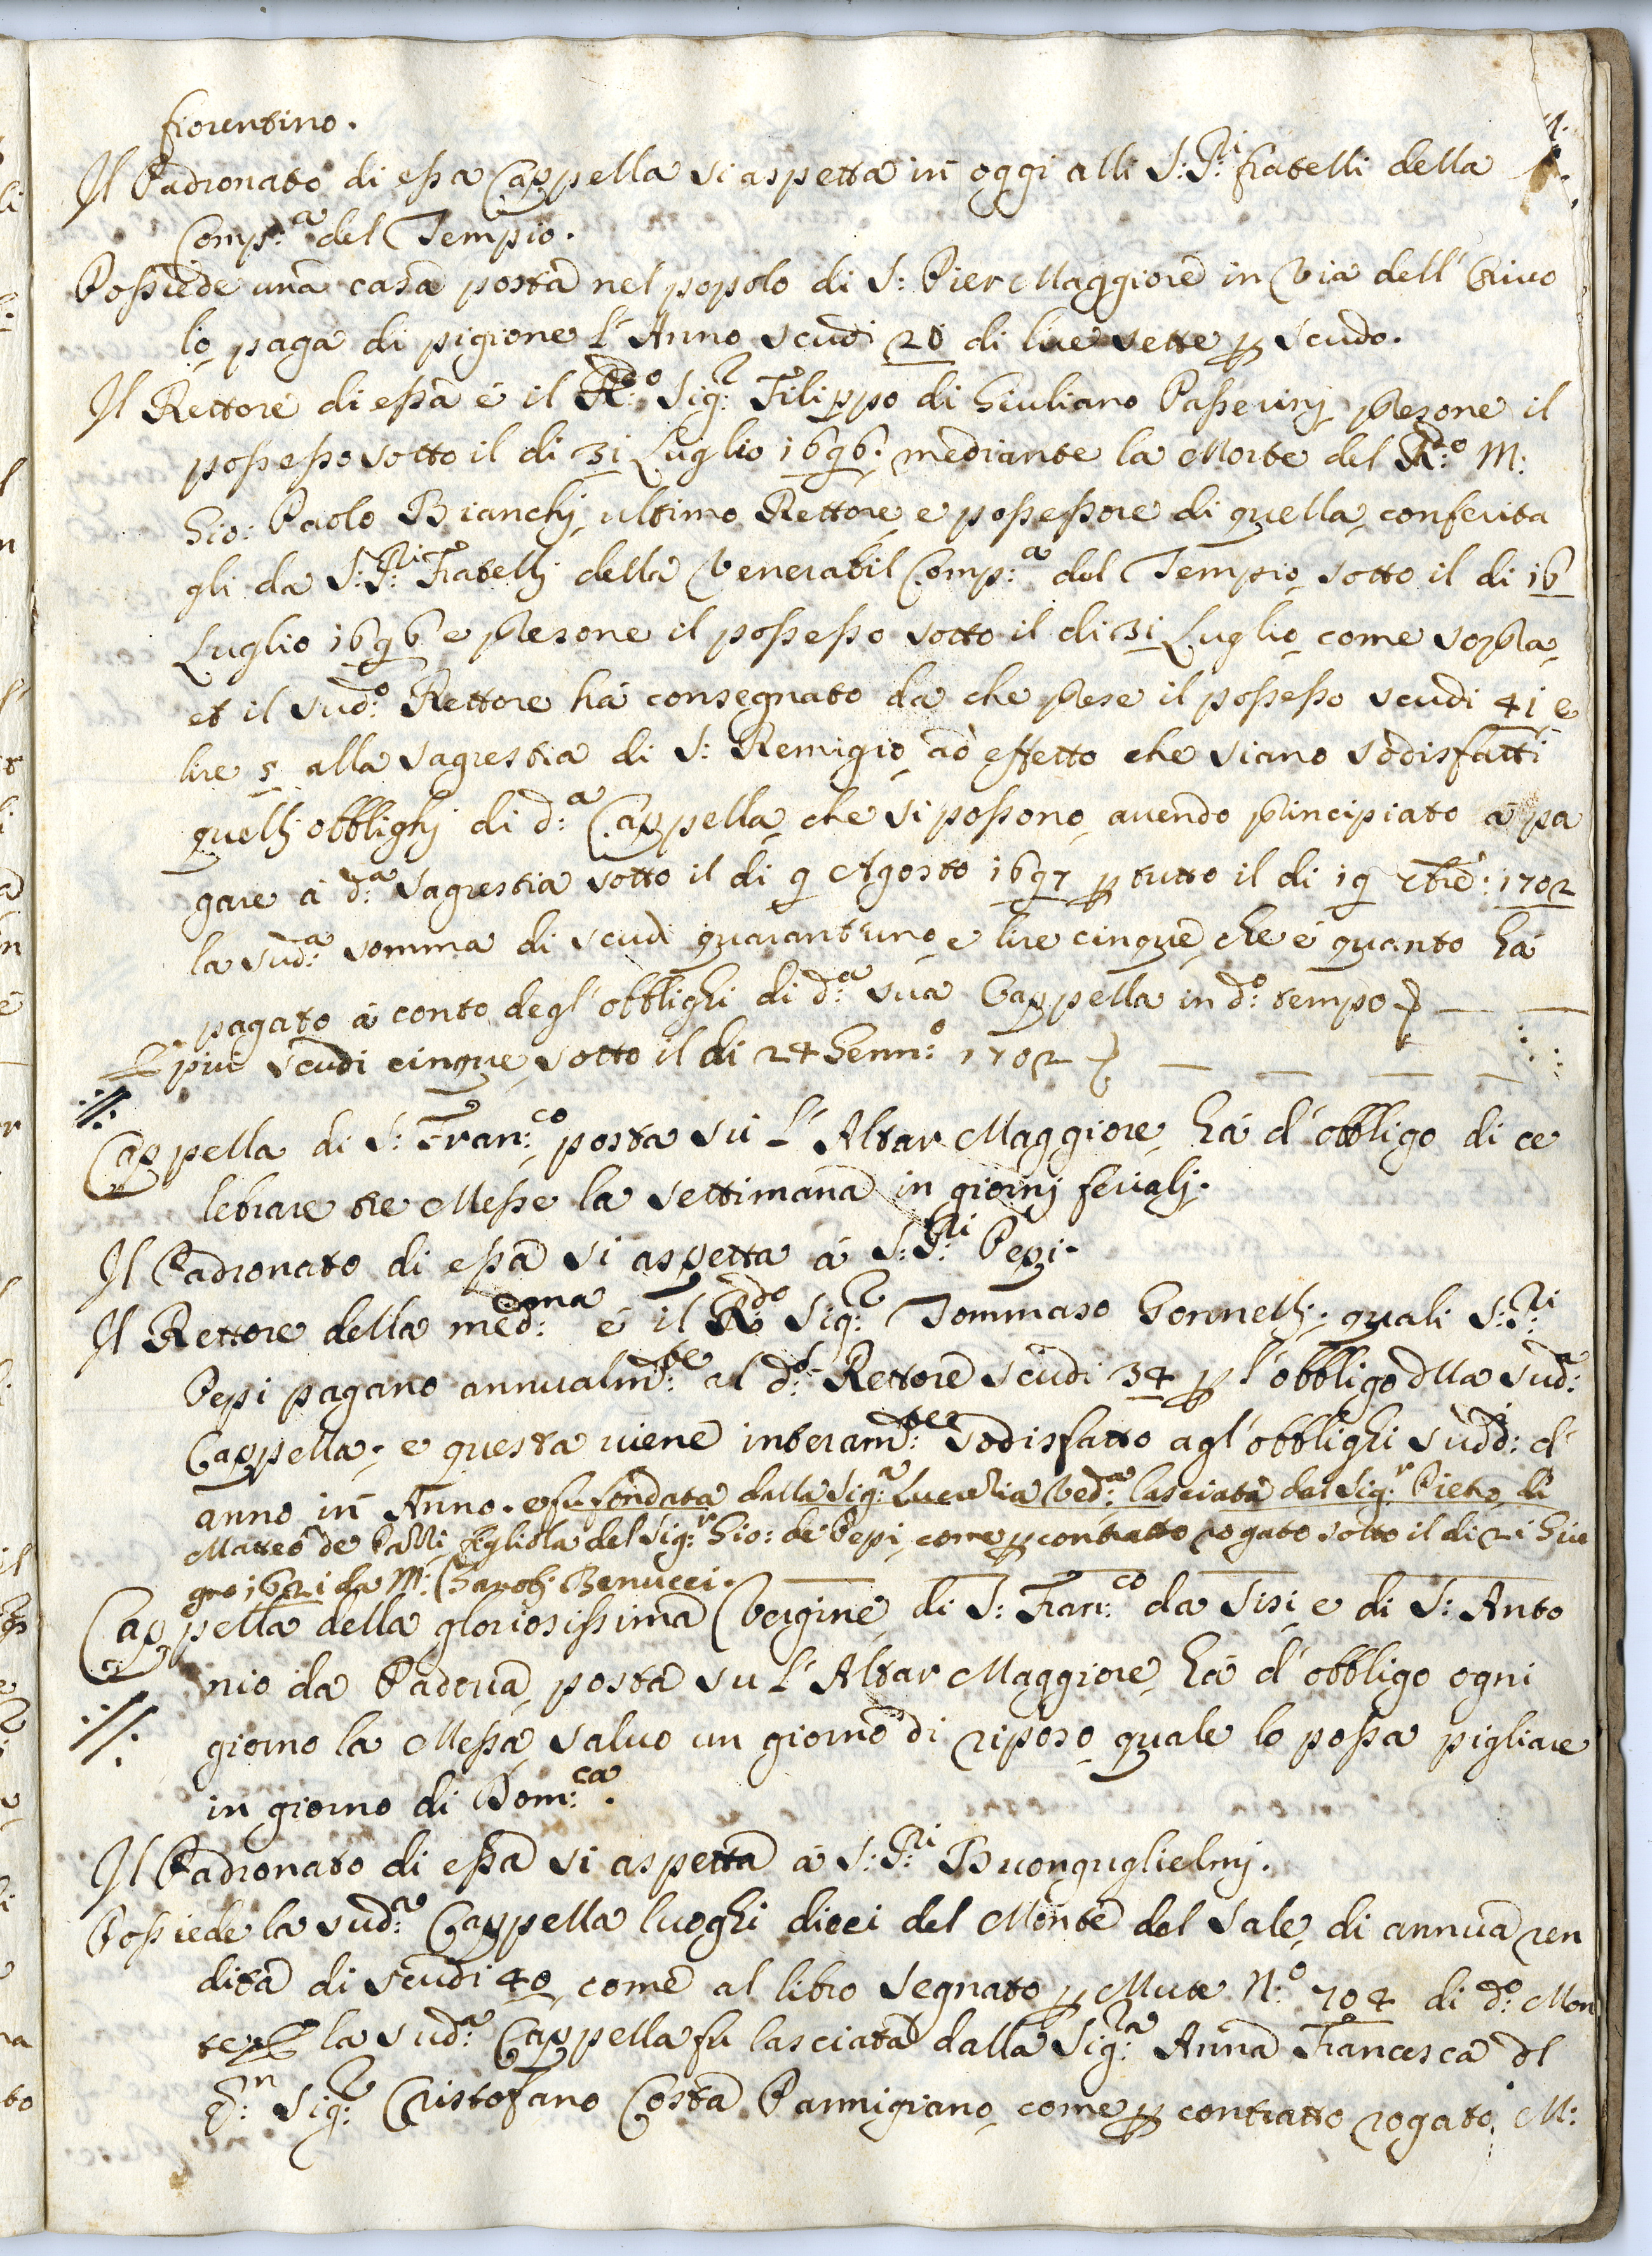 fiorentino.
Il Padronato di essa Cappella si aspetta in oggi alli S:S:ri fratelli della
Comp:a del Tempio.
Possiede una casa posta nel popolo di S: Pier Maggiore in Via dell'
lo paga di pigione l'Anno scudi 20 di lire sette p scudo.
Il Rettore di essa é il R:do Sig:r Filippo di Giuliano Passerinj presone il
possesso sotto il di 31 Luglio 1696. mediante la Morte del R:do M:
Gio: Paolo Bianchj ultimo Rettore e possessore di quella conferita
gli da S:S:ri Fratellj della Venerabil Comp:a del Tempio sotto il di 16
Luglio 1696 e presone il possesso sotto il di 31 Luglio come sopra
et il sud:o Rettore há consegnato da che prese il possesso scudi 41 e
lire 5 alla sagrestia di S: Remigio ad effetto che siano sodisfatti
quellj obblighj di d:a Cappella che si possono avendo principiato a pa
gare á d:a sagrestia sotto il di 9 Agosto 1697 p tutto il di 19 1702
la sud:a somma di scudi quarantuno e lire cinque che é quanto há
pagato á conto degl'obblighi di d:a sua Cappella in d:o tempo
E piu scudi cinque sotto il di 24 Genn:o 1702
Cappella di S: Fran:co posta sú l'Altar Maggiore há d'obbligo di ce
lebrare tre Messe la settimana in giornj ferialj.
Il Padronato di essa si aspetta á S:S:ri Pepi.
Il Rettore della med:ema é il R:do Sig:r Tommaso Gonnellj: quali S:S:ri
Pepi pagano annualm:te al d:o Rettore scudi 34 p l'obbligo dlla sud:a
Cappella, e questa viene interam:te sodisfatto agl'obblighi sudd:i d'
anno in Anno. e fu fondata dalla Sig:a Lucrezia Ved:a lasciata dal Sig:r Pietro di
Matteo de figliola del Sig:r Gio: de Pepi come p contratto rogato sotto il di 21 Giu
gno 1621 da M: Benucci.
Cappella della gloriosissima Vergine di S: Fran:co da Sisi e di S: Anto
nio da Padova posta su l'Altar Maggiore há d'obbligo ogni
giorno la Messa salvo un giorno di riposo quale lo possa pigliare
in giorno di Dom:ca.
Il Padronato di essa si aspetta á S:S:ri Buonguglielmj.
Possiede la sud:a Cappella luoghi dieci del Monte del Sale di annua ren
dita di scudi 40 come al libro segnato p Mute N:o 704 di d:o Mon
te la sud:a Cappella fu lasciata dalla Sig:ra Anna Francesca dl
Sig:r Cristofano Costa Parmigiano come p contratto rogato M: